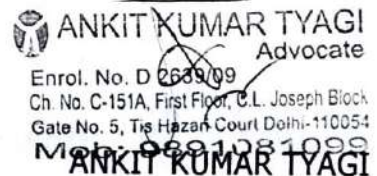 ANKIT KUMAR TYAGI
Advocate
Enrol. No. D 2639/09
Ch. No. C-151A, First Floor, C.L. Joseph Block
Gate No. 5, Tis Hazari Court Delhi-110054
Mob: 9891081099
ANKIT KUMAR TYAGI